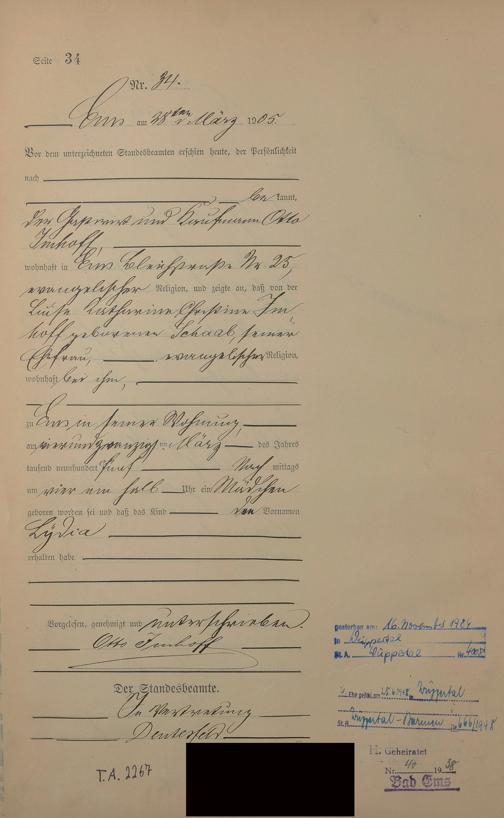 Seite 34
Nr. 34.
Ems am 28ten März 1905.
Vor dem unterzeichneten Standesbeamten erschien heute, der Persönlichkeit
nach
bekannt,
der Gastwirt und Kaufmann Otto
Imhoff,
wohnhaft in Ems Bleichstraße Nr. 25,
evangelischer Religion, und zeigte an, daß von der
Luise Katharine Christine Im-
hoff geborenen Schaab, seiner
Ehefrau, evangelischer Religion,
wohnhaft bei ihm,
zu Ems in seiner Wohnung,
am vierundzwanzigten März des Jahres
tausend neunhundert fünf Nach mittags
um vier ein halb Uhr ein Mädchen
geboren worden sei und daß das Kind den Vornamen
Lydia
erhalten habe.
Vorgelesen, genehmigt und unterschrieben.
Otto Imhoff
Der Standesbeamte.
In Vertretung
T.A. 2267
gestorben am: 16. November 1984
in Wuppertal
St.A. Wuppertal Nr.
2. Ehe geschl. am in Wuppertal
St.A. Wuppertal-Barmen Nr. 666/1948
H. Geheiratet
Nr. 40 1938
Bad Ems